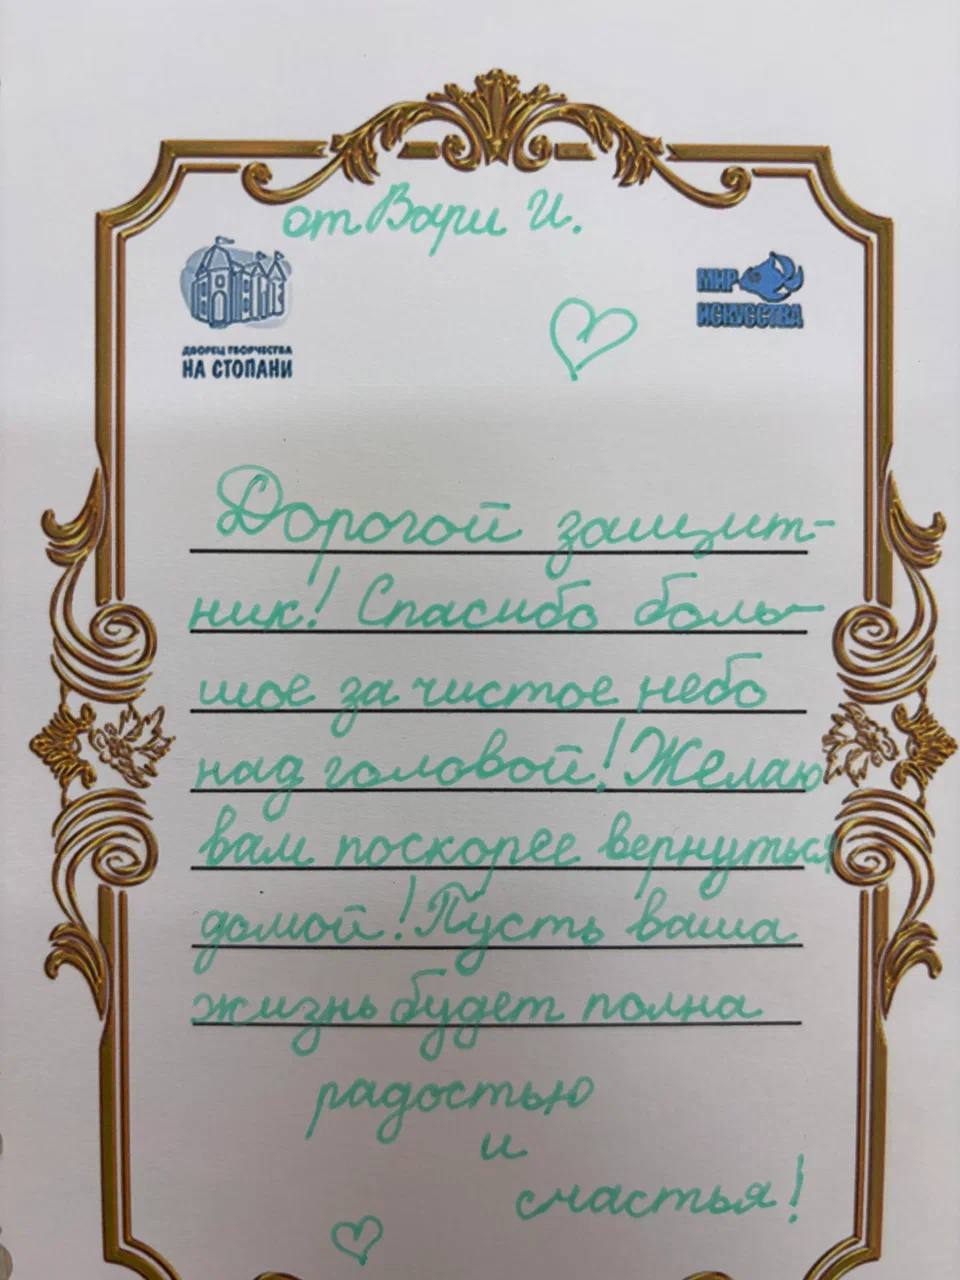 от Вари И.
ДВОРЕЦ ТВОРЧЕСТВА
НА СТОПАНИ
МИР
ИСКУССТВА
Дорогой защит-
ник! Спасибо боль-
шое за чистое небо
над головой! Желаю
вам поскорее вернуться
домой! Пусть ваша
жизнь будет полна
радостью
и
счастья!